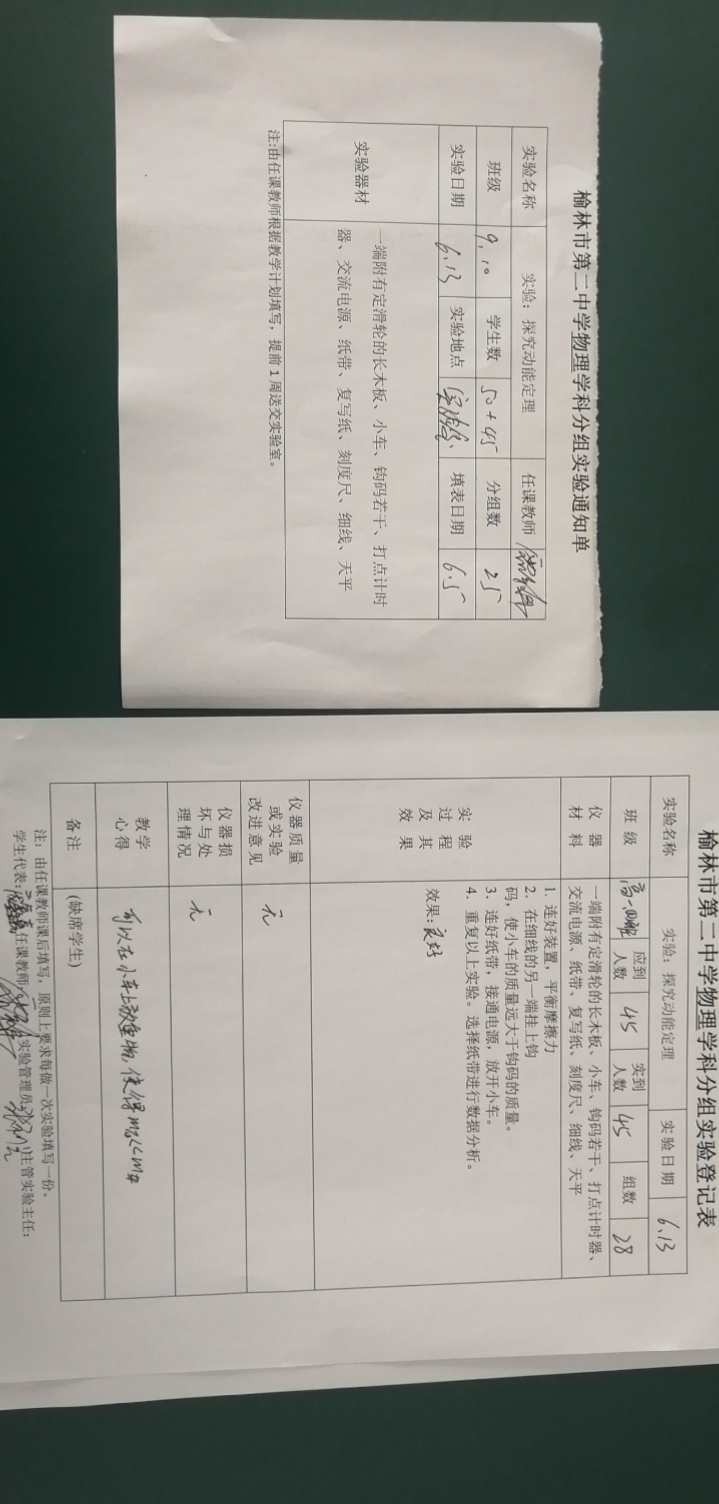 榆林市第二中学物理学科分组实验通知单
实验名称 实验：探究动能定理 任课教师
班级 9.10 学生数 50+45 分组数 25
实验日期 6.13 实验地点 填表日期 6.5
实验器材 一端附有定滑轮的长木板、小车、钩码若干、打点计时
器、交流电源、纸带、复写纸、刻度尺、细线、天平
注:由任课教师根据教学计划填写，提前1周送交实验室。
榆林市第二中学物理学科分组实验登记表
实验名称 实验：探究动能定理 实验日期 6.13
班级 高一 应到人数 45 实到人数 45 组数 28
仪器材料 一端附有定滑轮的长木板、小车、钩码若干、打点计时器、
交流电源、纸带、复写纸、刻度尺、细线、天平
实验过程及其效果
1. 连好装置，平衡摩擦力
2. 在细线的另一端挂上钩
码，使小车的质量远大于钩码的质量。
3. 连好纸带，接通电源，放开小车。
4. 重复以上实验。选择纸带进行数据分析。
效果：良好
仪器质量或实验改进意见 无
仪器损坏与处理情况 无
教学心得 可以在小车上放重物，使得
备注 (缺席学生)
注：由任课教师课后填写，原则上要求每做一次实验填写一份。
学生代表： 任课教师： 实验管理员： 主管实验主任：